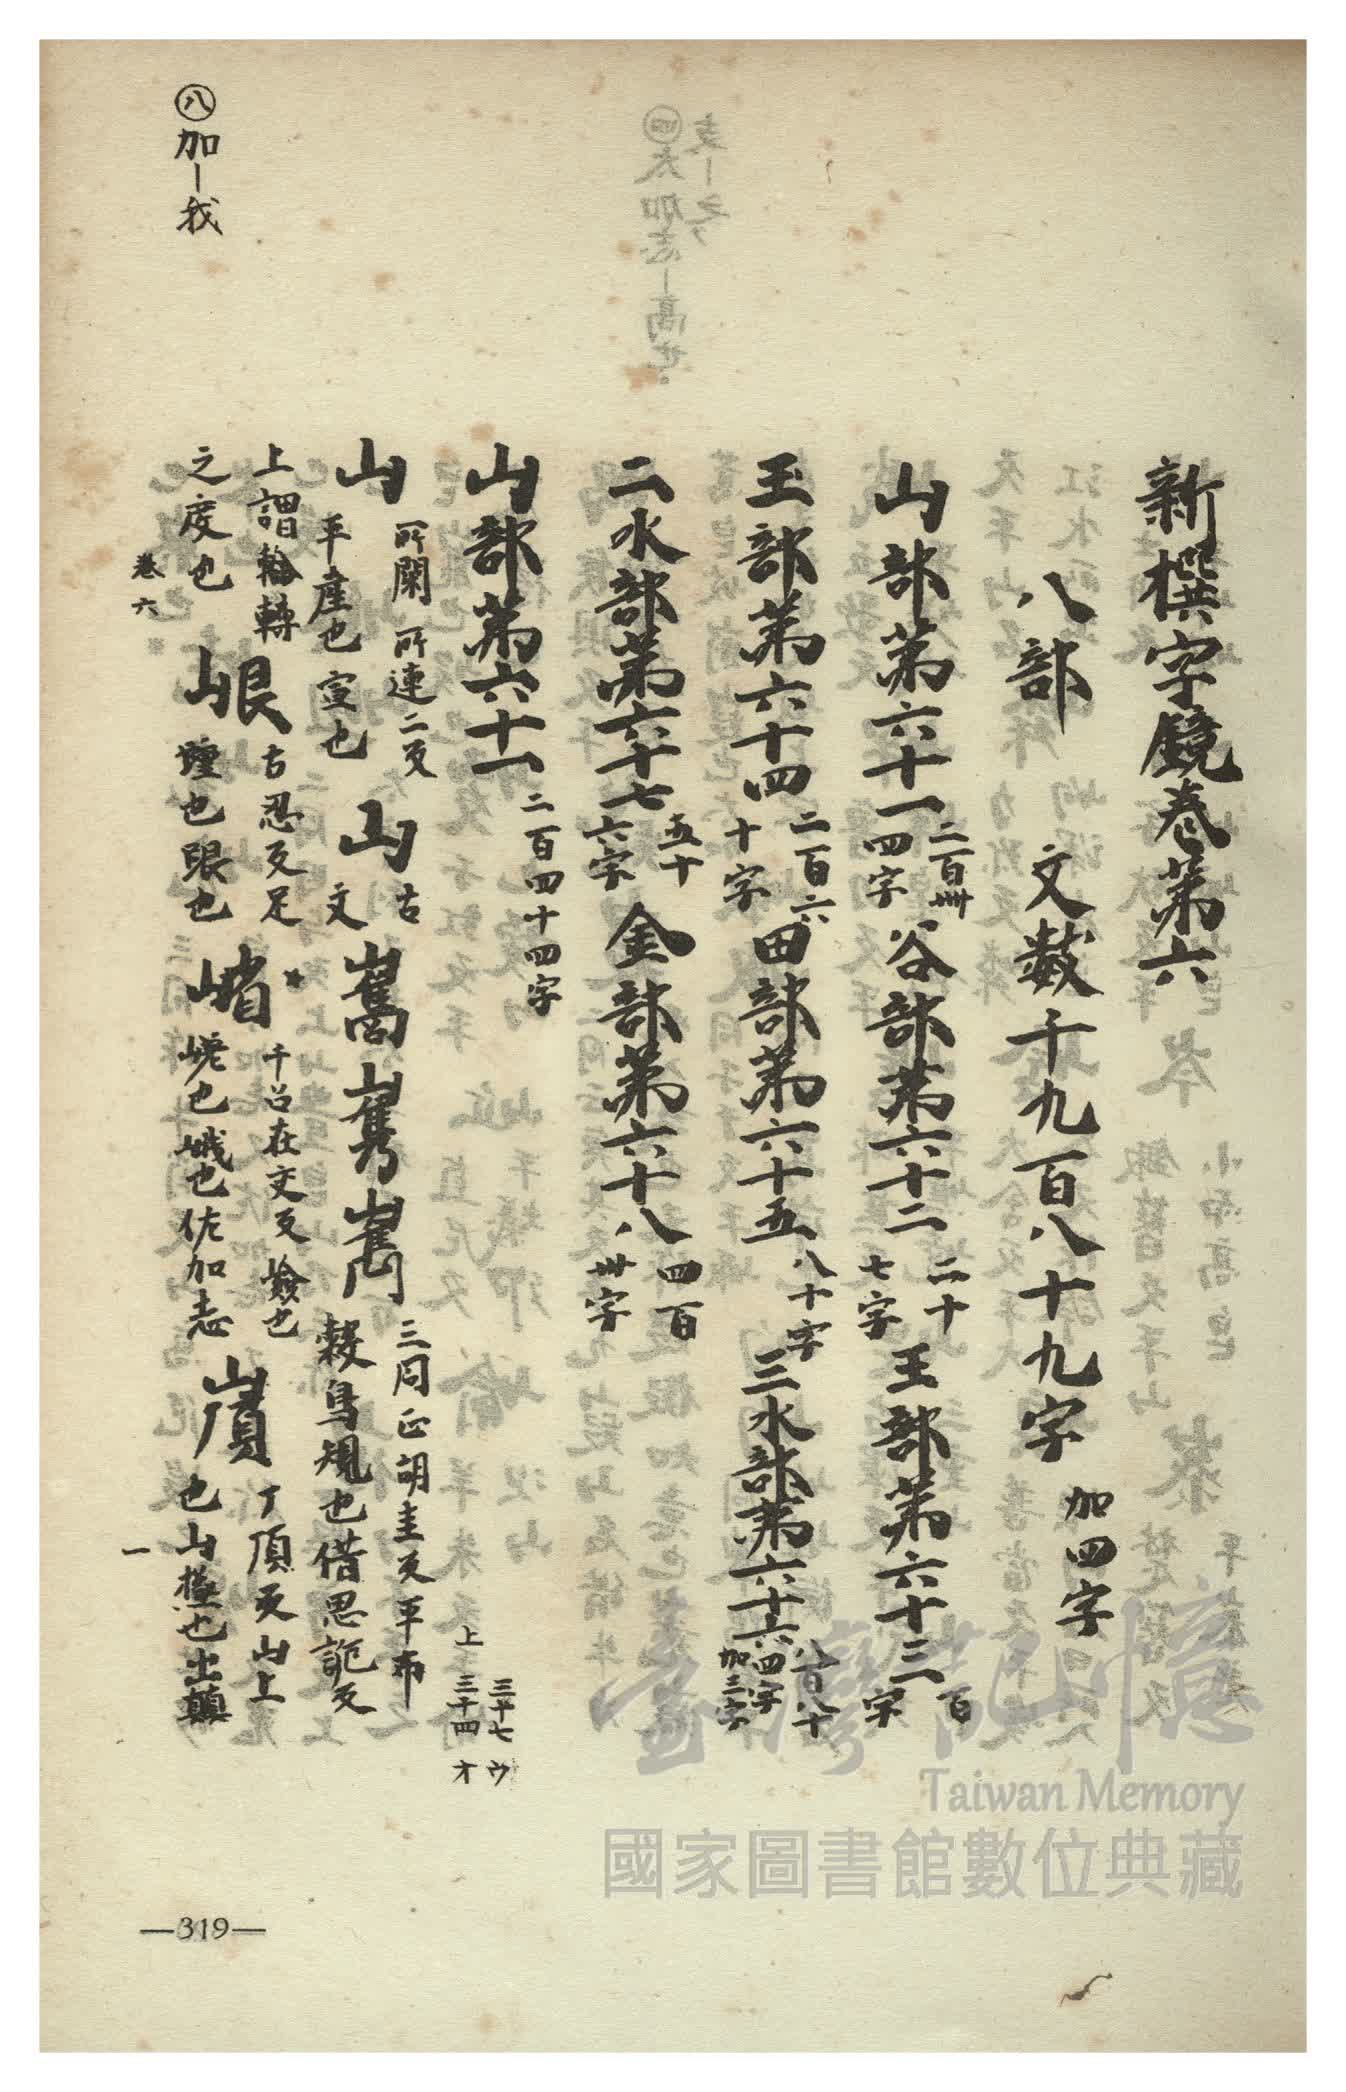 新撰字鏡卷第六
八部 文數千九百八十九字 加四字
山部第六十一 二百卌四字 谷部第六十二 二十七字 王部第六十三 百字
玉部第六十四 二百六十字 田部第六十五 八十字 三水部第六十六 八百八十四字加三字
二水部第六十七 五十六字 金部第六十八 四百卌字
山部第六十一 二百四十四字
三十七 ウ
上 三十四 オ
山 所閑所連二反平産也宣也 山 古文 巂 三同正胡圭反平布 穀鳥規也借思 反
上謂輪轉之度也 峎 古忍反足踵也 也 㟡 千呂在文反嶮也 嵯也峨也佐加志 丁頂反山上也山 也出顛
㊇加|我
卷六
一
—319—
臺灣記憶
Taiwan Memory
國家圖書館數位典藏